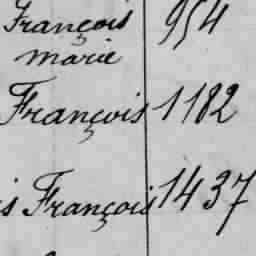 François 954
marie
François 1182
is François 1437